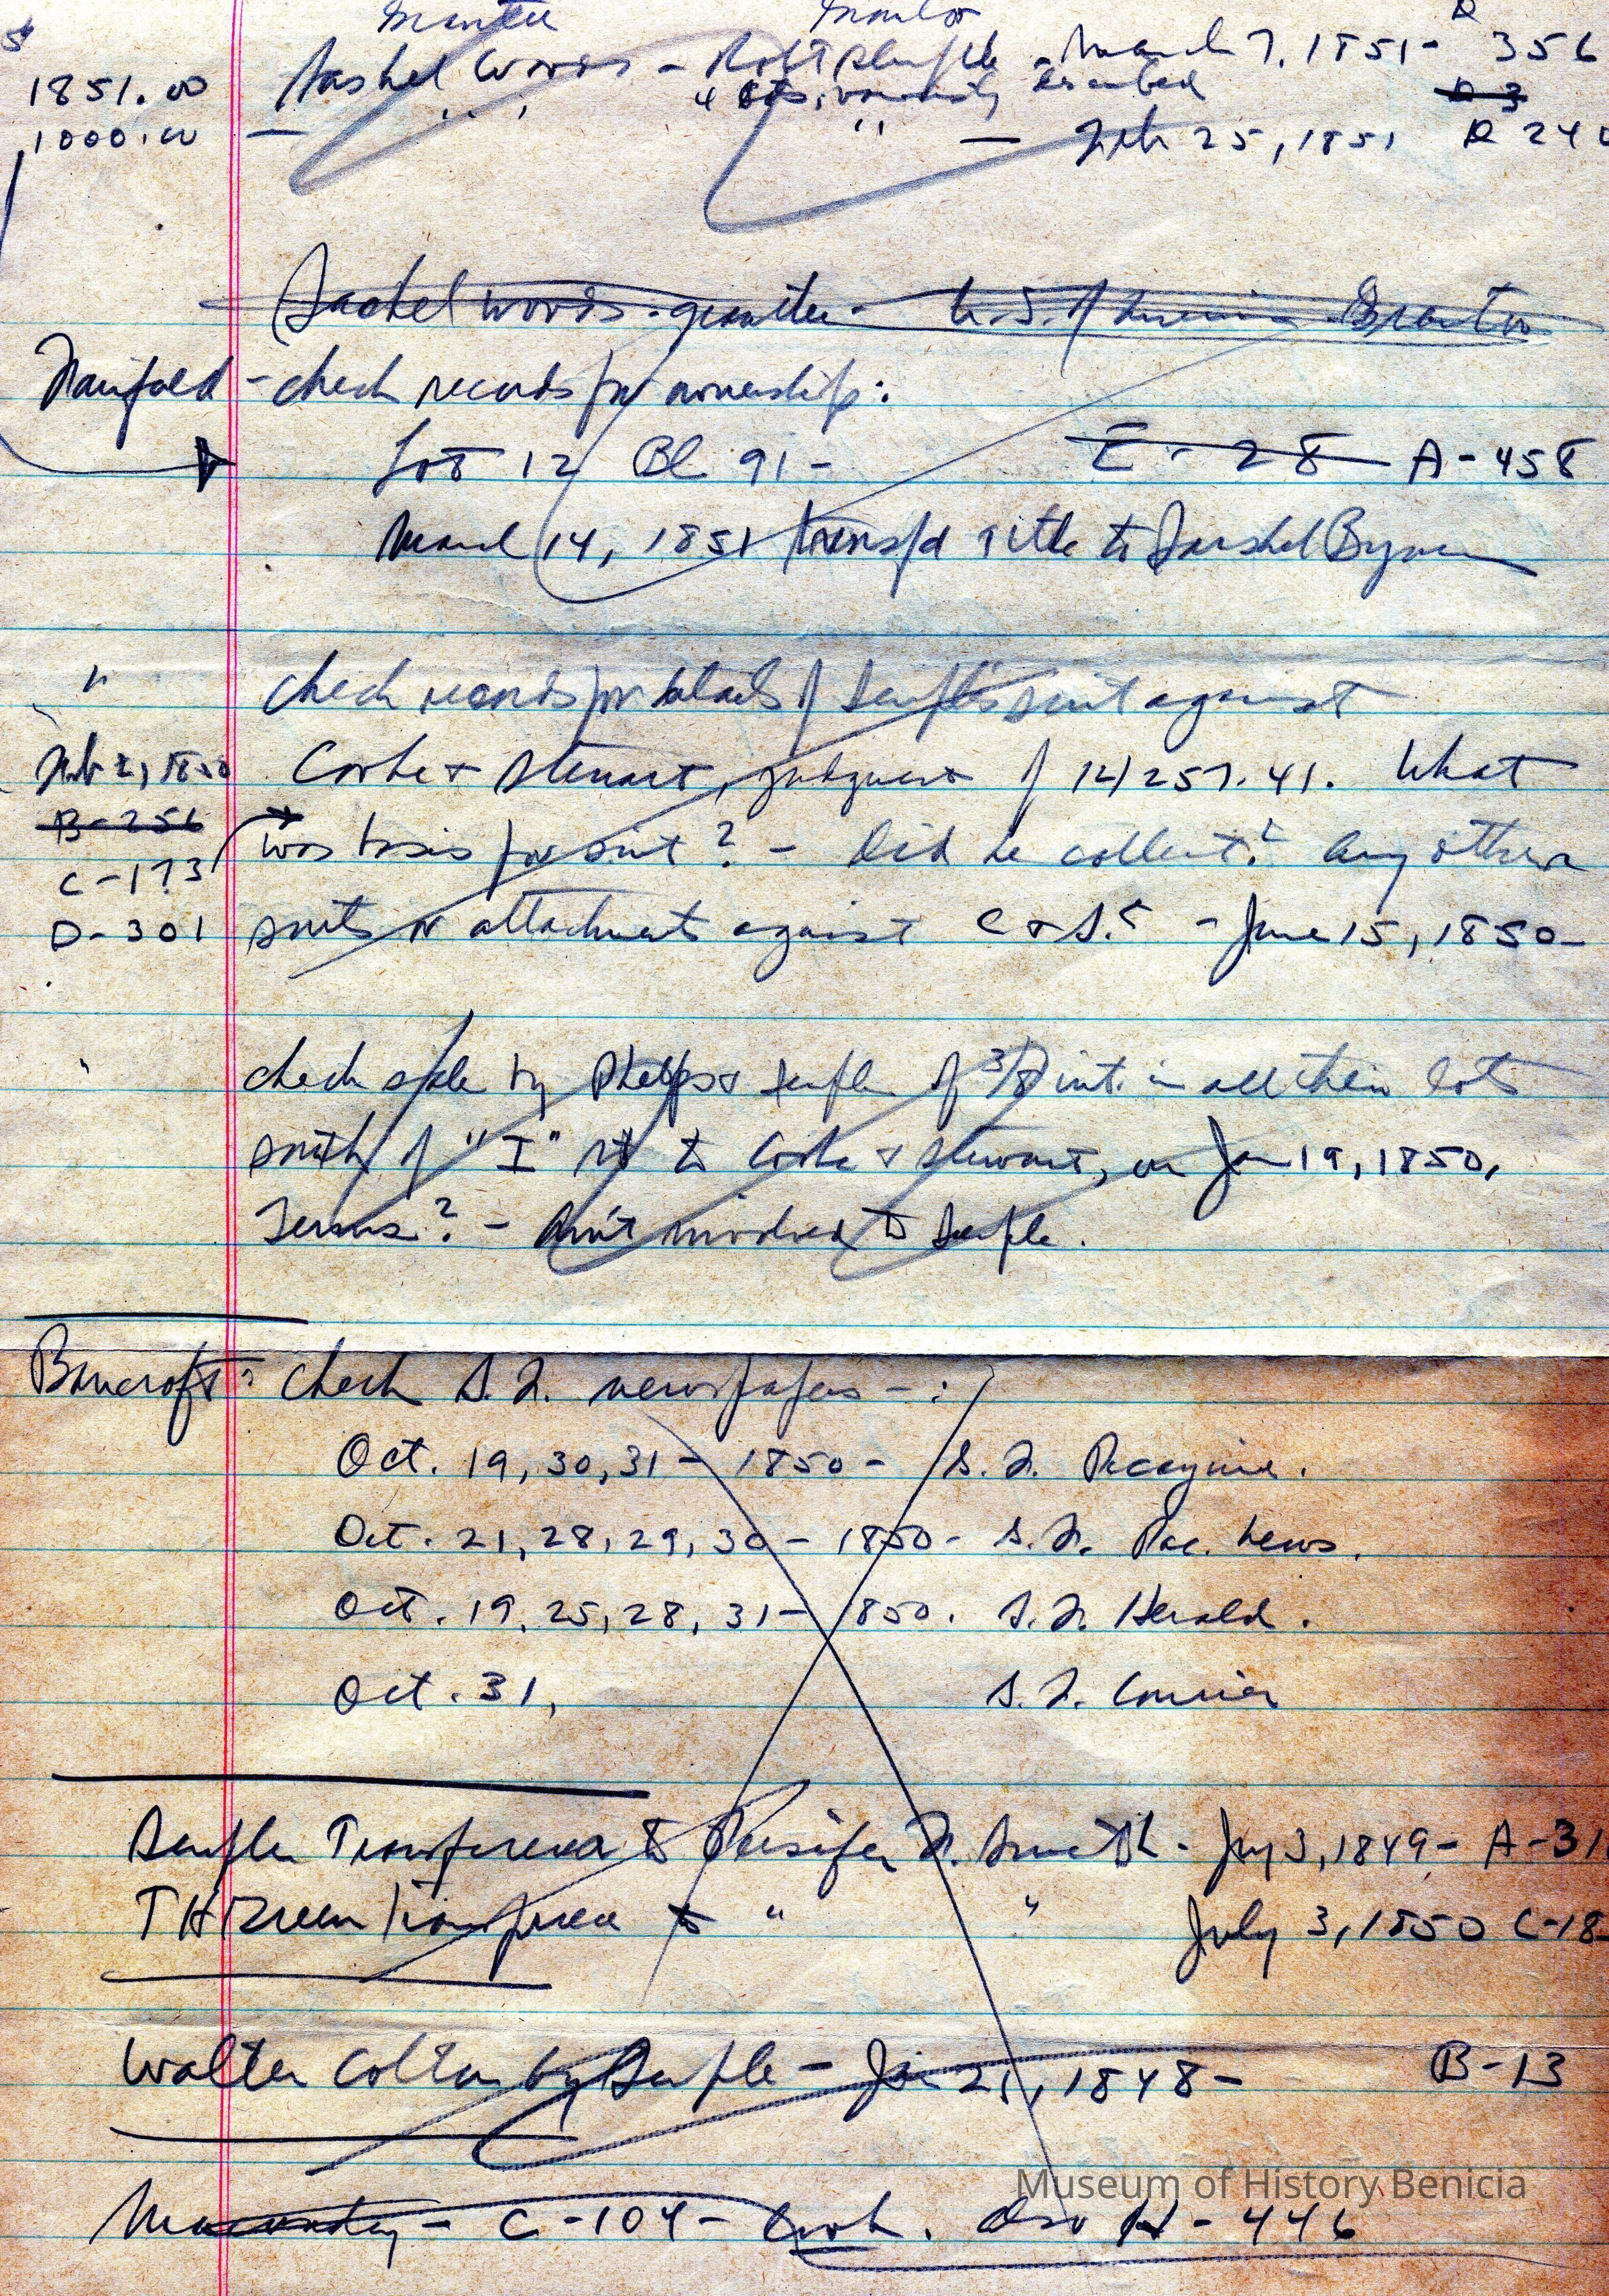 Grantee Grantor D
$
1851.00 Rashel Woods - Robt Semple - March 7, 1851 - 356
" " 4 lots, variously described D 3
1000.00 — " — Feb 25, 1851 D 240
Rashel Woods - grantee - Grantor
Fairfield - check records for ownership:
Lot 12 Bl 91 - E - 28 A-458
March 14, 1851 transfd title to Rashel Byrne
" check records for details of Semple's suit against
Feb 2, 1850 Cooke & Stewart, judgment of 12,257.41. What
B-256
C-173 was basis for suit? - Did he collect? Any other
D-301 suits or attachments against C & S.? - June 15, 1850 -
" check sale by Phelps & Semple of 3/8 int. in all their lots
south of "I" St to Cooke & Stewart, on Jan 19, 1850,
Terms? - Am't involved to Semple.
Bancroft: check S.F. newspapers - :
Oct. 19, 30, 31 - 1850 - S.F. Picayune.
Oct. 21, 28, 29, 30 - 1850 - S.F. Pac. News.
Oct. 19, 25, 28, 31 - 1850. S.F. Herald.
Oct. 31, S.F. Courier
Semple Transference to Persifer F. Smith - 3, 1849 - A-31
T H Green transference to " " July 3, 1850 C-18
Walter Colton by Semple - Jan 21, 1848 - B-13
Macondray - C-104 - Book. Also H-446
Museum of History Benicia